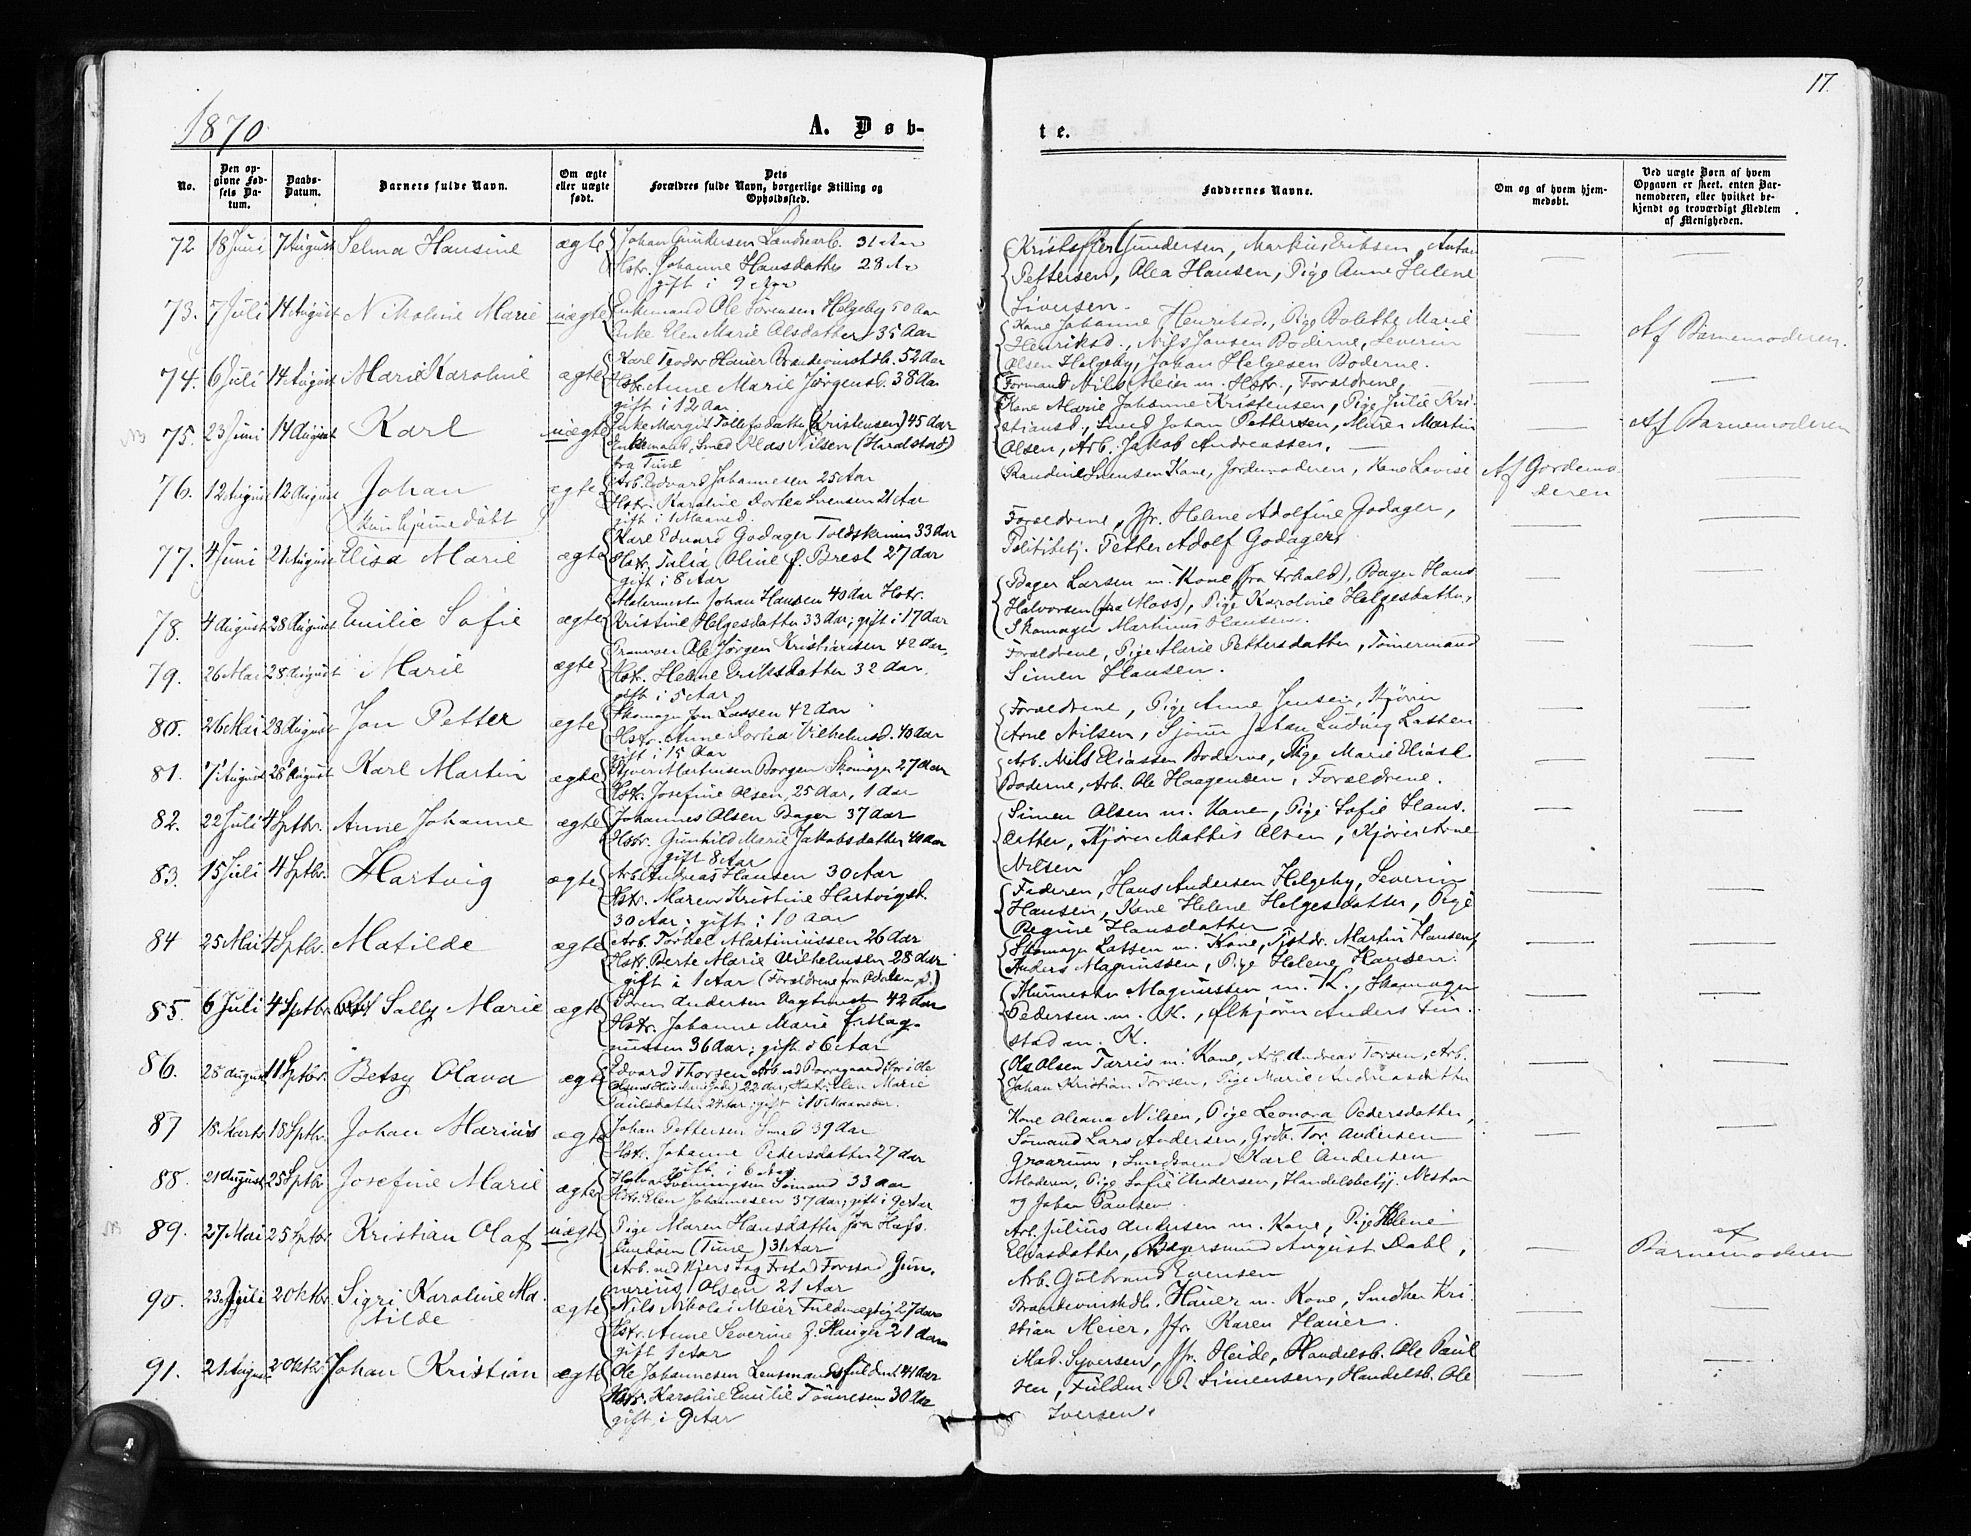 17.
1870.
A. Døb-
te.
No.
Den op-
givne Fød-
sels Da-
tum.
Daabs-
Datum.
Barnets fulde Navn.
Om ægte
eller uægte
født.
Dets
Forældres fulde Navn, borgerlige Stilling og
Opholdssted.
Faddernes Navne.
Om og af hvem hjem-
medøbt.
Ved uægte Børn af hvem
Opgaven er skeet, enten Bar-
nemoderen, eller hvilket be-
kjendt og troværdigt Medlem
af Menigheden.
72 18 Juni 7 August Selma Hansine ægte
Johan Gundersen Landarb. 31 Aar
Hstr. Johanne Hansdatter 28 Ar
gift i 9 Aar
Kristoffer Gundersen, Markus Eriksen, Anton
Pettersen, Alea Hansen, Pige Anne Helene
Siversen.
73. 7 Juli 14 August Nikoline Marie uægte
Enkemand Ole Sørensen Helgeby 50 Aar
Enke Elen Marie Olsdatter 35 Aar
Kone Johanne Henriksd., Pige Bolette Marie
Henriksd., Nils Jansen Boderne, Severin
Olsen Helgeby, Johan Helgesen Boderne.
Af Barnemoderen.
74. 6 Juli 14 August Marie Karoline ægte
Karl Teodor Hauer Brændevinshdl. 52 Aar
Hstr. Anne Marie Jørgensd. 38 Aar
gift i 12 Aar
Formand Nils Meier m. Hstr., Forældrene,
NB 75. 23 Juni 14 August Karl uægte
Enke Margit Tollefsdatter (Kristensen) 45 Aar
Enkemand, Smed Olas Nilsen (Haralstad)
fra Tune
Kone Marie Johanne Kristensen, Pige Julie Kri-
stiansd., Smed Johan Pettersen, Murer Martin
Olsen, Arb. Jakob Andreassen.
Af Barnemoderen
76. 12 August 12 August Johan
(kun hjemmedøbt) ægte
Arb. Edvard Johannesen 25 Aar
Hstr. Karoline Dortea Svensen 21 Aar
gift i 1 Maaned
Randine Svensen Kone, Jordemoderen, Kone Lovise
Af Gordemo-
deren
77. 4 Juni 21 August Elisa Marie ægte
Karl Edvard Godager Toldskriver 33 Aar
Hstr. Julia Oline f. Brest 27 Aar
gift i 8 Aar
Forældrene, Jfr. Helene Adolfine Godager,
Politibetj. Petter Adolf Godager,
78. 4 August 28 August Emilie Sofie ægte
Malermester Johan Hansen 40 Aar Hstr.
Kristine Helgesdatter 33 Aar; gift i 17 Aar
Bager Larsen m. Kone (fra Askald), Bager Hans
Halvorsen (fra Moss), Pige Karoline Helgesdatter,
Skomager Martinus Hansen.
79. 26 Mai 28 August Marie ægte
Ole Jørgen Kristiansen 42 Aar,
Hstr. Helene Eriksdatter 32 Aar,
gift i 5 Aar.
Forældrene, Pige Marie Pettersdatter, Tømermand
Simen Hansen.
80. 26 Mai 28 August Jon Petter ægte
Skomager Jon Lassen 42 Aar
Hstr. Anne Dortea Vilhelmsd. 40 Aar
gift i 15 Aar
Forældrene, Pige Anne Jensen, Kjører
Arne Nilsen, Sjøm. Johan Ludvig Lassen
81. 7 August 28 August Karl Martin ægte
Syver Martinsen Borgen Skomager 27 Aar
Hstr. Josefine Olsen, 25 Aar, 1 Aar
Arb. Nils Eliassen Boderne, Pige Marie Eliasd.
Boderne, Arb. Ole Haagensen, Forældrene.
82. 22 Juli 4 Sptbr. Anne Johanne ægte
Johannes Olsen Bager 37 Aar
Hstr. Gunhild Marie Jakobsdatter 40 Aar
gift 8 Aar
Simen Olsen m. Kone, Pige Sofie Hans-
datter, Kjører Mathis Olsen, Kjører Arne
Nilsen
83. 15 Juli 4 Sptbr. Hartvig ægte
Arb. Andreas Hansen 30 Aar
Hstr. Maren Kristine Hartvigsd.
30 Aar; gift i 10 Aar
Faderen, Hans Andersen Helgeby, Severin
Hansen, Kone Helene Helgesdatter, Pige
Regine Hansdatter
84 25 Mai 4 Sptbr. Matilde ægte
Arb. Torkel Martiniussen 26 Aar
Hstr. Berte Marie Vilhelmsen 28 Aar
gift i 1 Aar (Forældrene fra Odalen)
Skomager Lassen m. Kone, Tjstdr. Martin Hansen,
Anders Magnussen, Pige Helene Hansen.
85. 6 Juli 4 Sptbr. Sally Marie ægte
Søren Andersen Vagtmest. 42 Aar
Hstr. Johanne Marie f. Mag-
nussen 36 Aar; gift i 6 Aar
Murmester Magnussen m. K., Skomager
Pedersen m. K., Ølkjører Anders Fin-
stad m. K.
86. 28 August 11 Sptbr. Betsy Olava ægte
Edvard Thorsen Arb. ved Borregaard
22 Aar, Hstr. Elen Marie
Paulsdatter 24 Aar; gift i 10 Maaneder.
Ole Olsen Tarris m. Kone, Arb. Andreas Torsen, Arb.
Johan Kristian Torsen, Pige Marie Andreasdatter
87 18 Marts 18 Sptbr. Johan Marius ægte
Johan Pettersen Smed 39 Aar
Hstr. Johanne Pedersdatter 27 Aar
gift i 6 Aar
Kone Oleana Nilsen, Pige Leonora Pedersdatter,
Sømand Lars Andersen, Grdb. Tor. Andersen
Graarum, Smedsvend Karl Andersen
88. 21 August 25 Sptbr. Josefine Marie ægte
Halvor Svenningsen Sømand 33 Aar
Hstr. Elen Johannesen 37 Aar; gift i 9 Aar
Moderen, Pige Sofie Andersen, Handelsbetj. Nestor
og Johan Paulsen
NB 89. 27 Mai 25 Sptbr. Kristian Olaf uægte
Pige Maren Hansdatter fra Hafs-
lundsøen (Tune) 31 Aar
Arb. ved Forstad Gun-
nerius Olsen 21 Aar
Arb. Julius Andersen m. Kone, Pige Helene
Eliasdatter, Bagersvend August Dahl,
Arb. Gulbrand Evensen
af
Barnemoderen
90. 23 Juli 2 Oktbr. Sigri Karoline Ma-
tilde ægte
Nils Nikolai Meier Fuldmægtig 27 Aar
Hstr. Anne Severine f. Hauger 21 Aar
gift 1 Aar
Brændevinshdl. Hauer m. Kone, Snedker Kri-
stian Meier, Jfr. Karen Hauer.
91. 21 August 2 Oktbr. Johan Kristian ægte
Ole Johannesen Lensmandsfuldm. 41 Aar
Hstr. Karoline Emilie Tønnesen 30 Aar
gift i 9 Aar
Mad. Syversen, Jfr. Heide, Handelsb. Ole Paul-
sen, Fuldm. P. Simensen, Handelsb. Ole
Iversen.